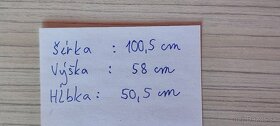 Šírka : 100,5 cm
Výška : 58 cm
Hĺbka : 50,5 cm